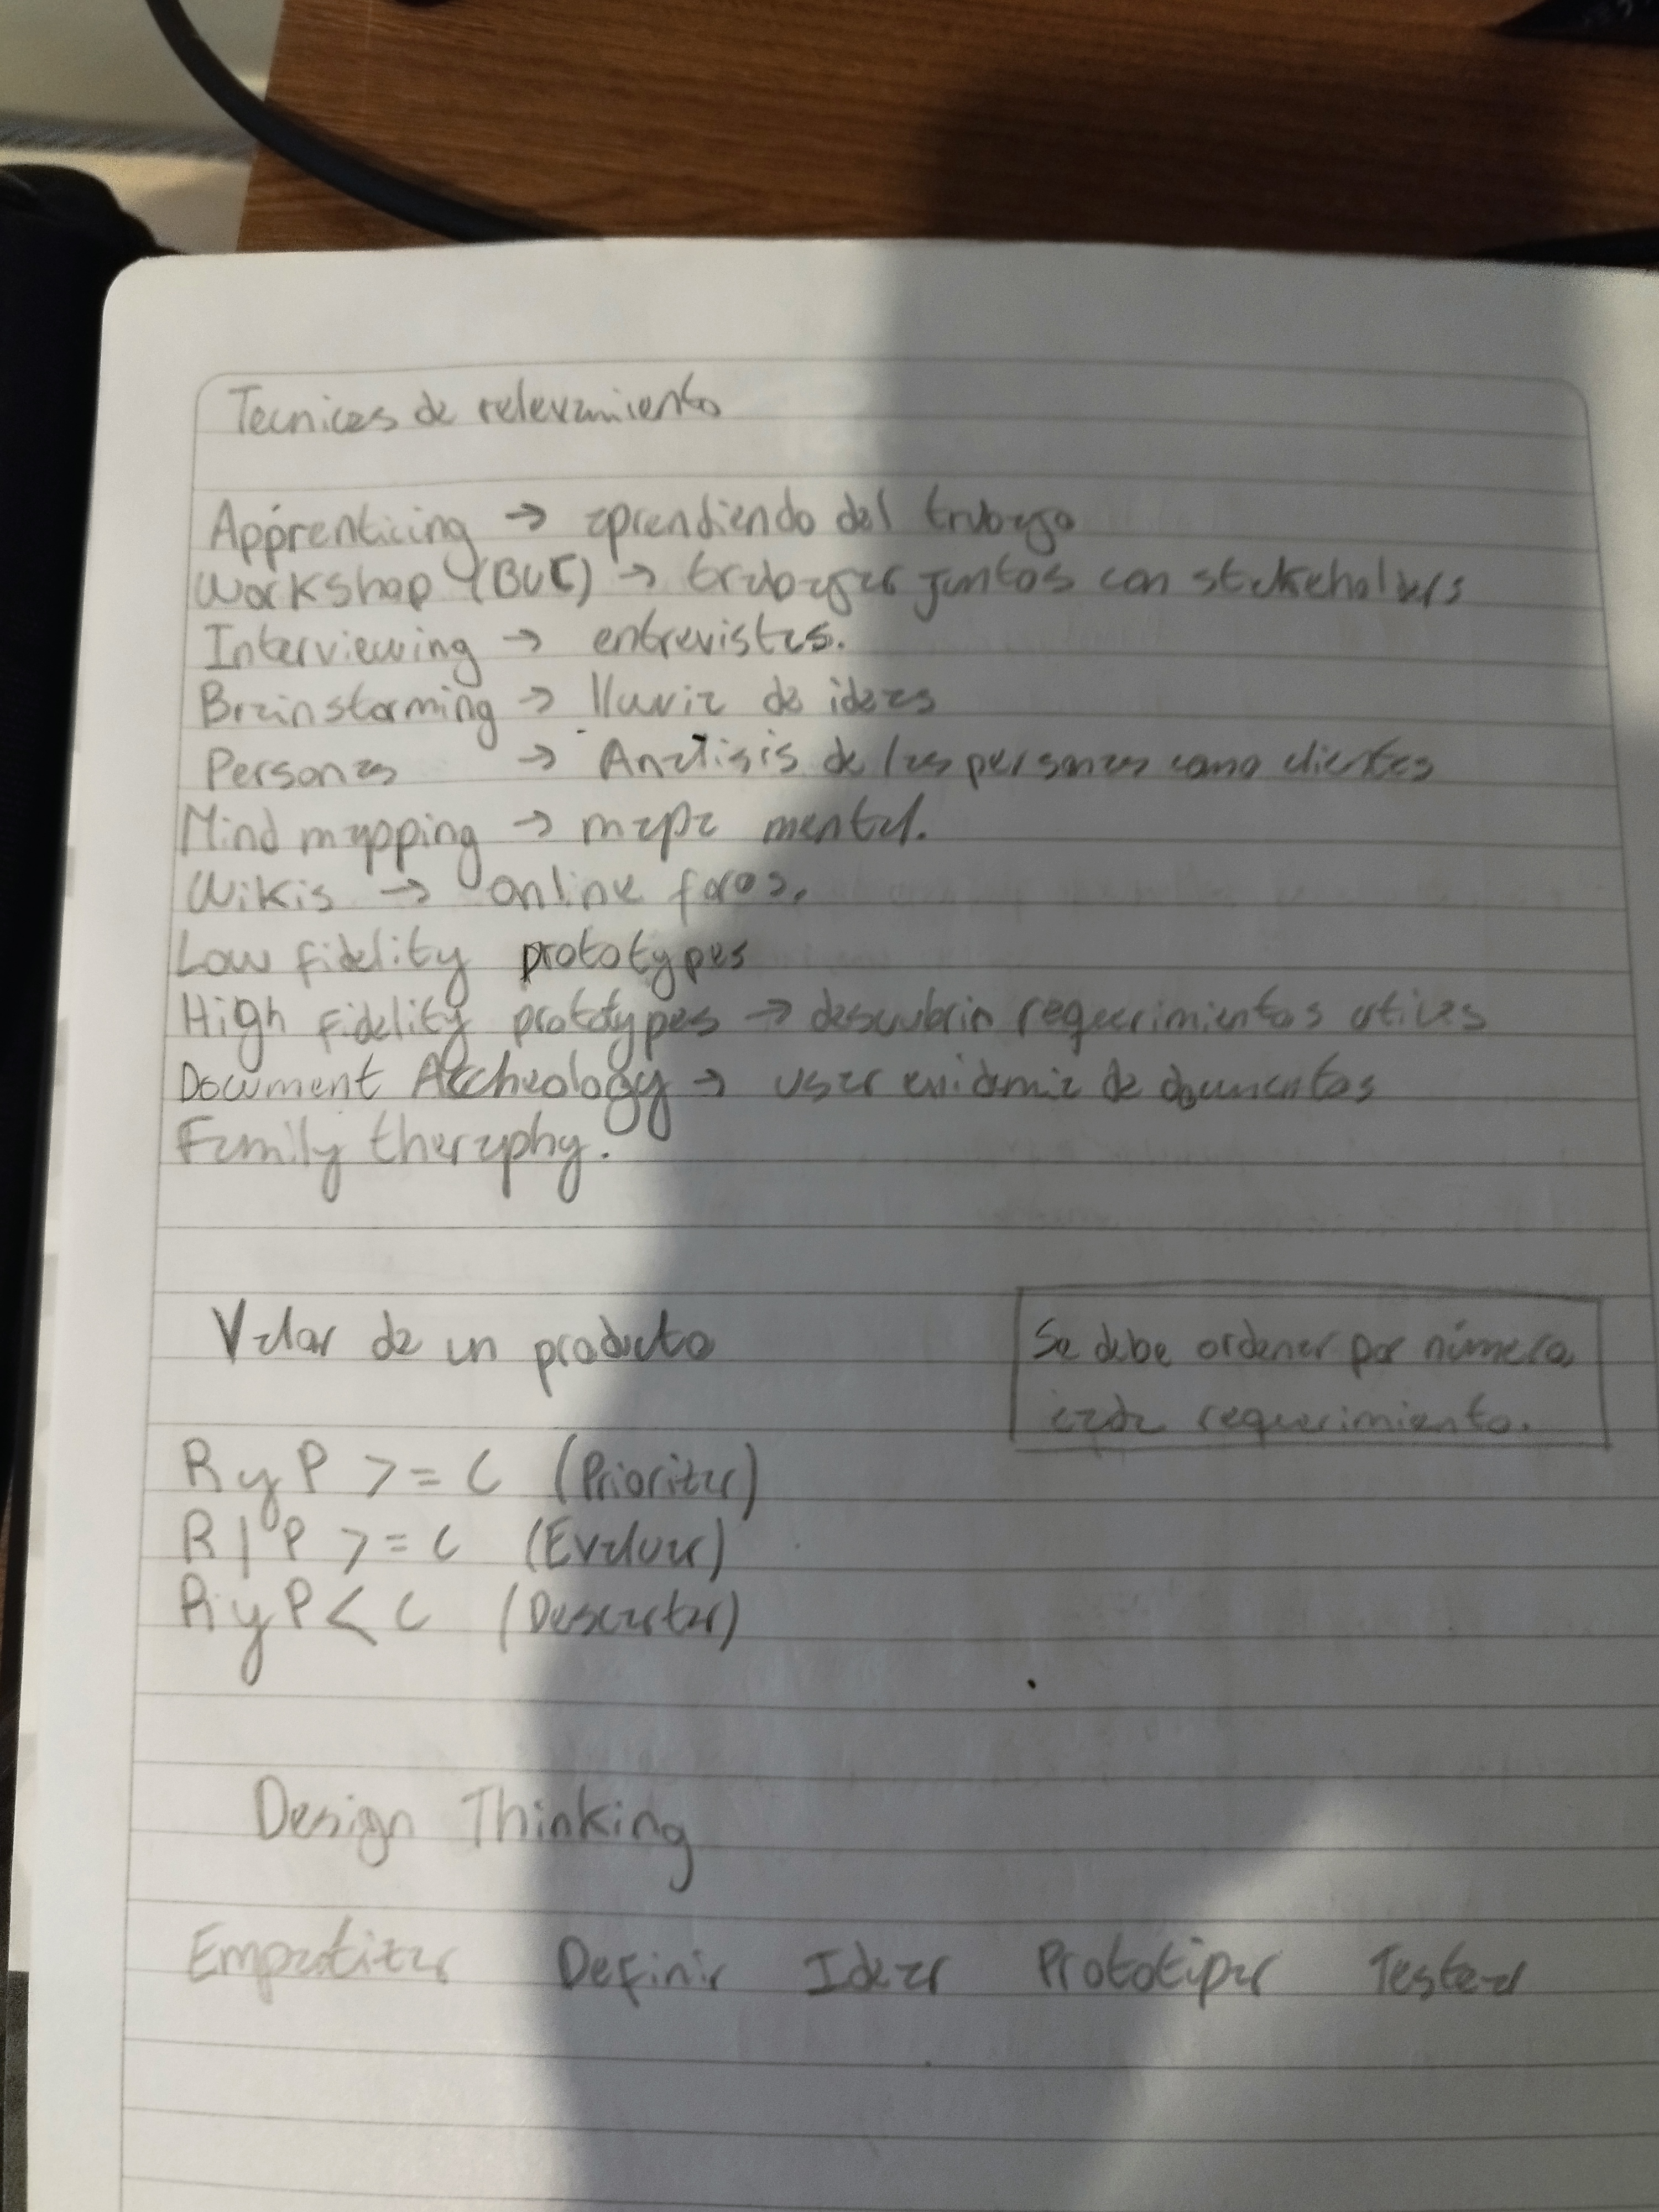 Tecnicas de relevamiento
Apprenticing → aprendiendo del trabajo
Workshop (BUC) → trabajar juntos con stakeholders
Interviewing → entrevistas.
Brainstorming → lluvia de ideas
Personas → Analisis de las personas como clientes
Mind mapping → mapa mental.
Wikis → online foros.
Low fidelity prototypes
High fidelity prototypes → descubrir requerimientos utiles
Document Archeology → usar evidencia de documentos
Family theraphy.
Valor de un producto
Se debe ordenar por número
cada requerimiento.
R y P >= C (Priorizar)
R | P >= C (Evaluar)
R y P < C (Descartar)
Design Thinking
Empatizar Definir Idear Prototipar Testear